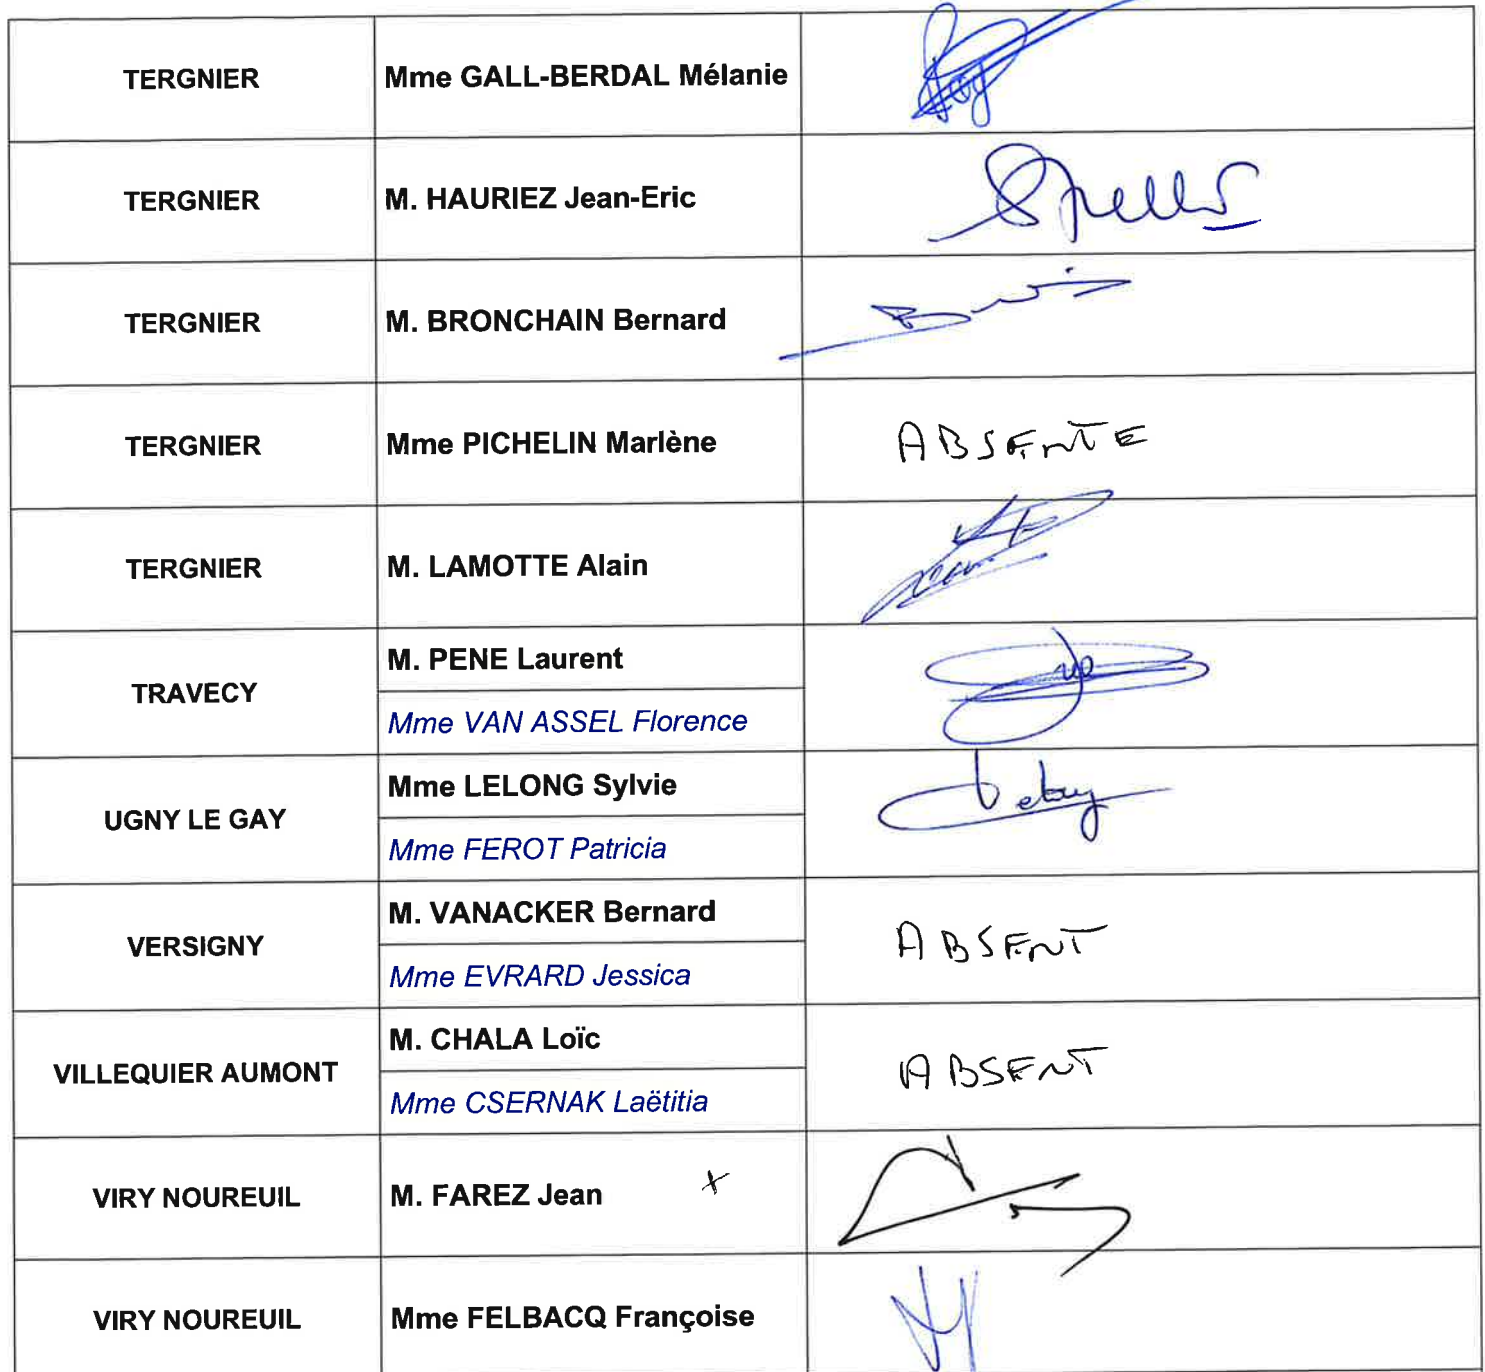 TERGNIER Mme GALL-BERDAL Mélanie
TERGNIER M. HAURIEZ Jean-Eric
TERGNIER M. BRONCHAIN Bernard
TERGNIER Mme PICHELIN Marlène ABSENTE
TERGNIER M. LAMOTTE Alain
TRAVECY
M. PENE Laurent
Mme VAN ASSEL Florence
UGNY LE GAY
Mme LELONG Sylvie
Mme FEROT Patricia
VERSIGNY
M. VANACKER Bernard
Mme EVRARD Jessica
ABSENT
VILLEQUIER AUMONT
M. CHALA Loïc
Mme CSERNAK Laëtitia
ABSENT
VIRY NOUREUIL M. FAREZ Jean x
VIRY NOUREUIL Mme FELBACQ Françoise